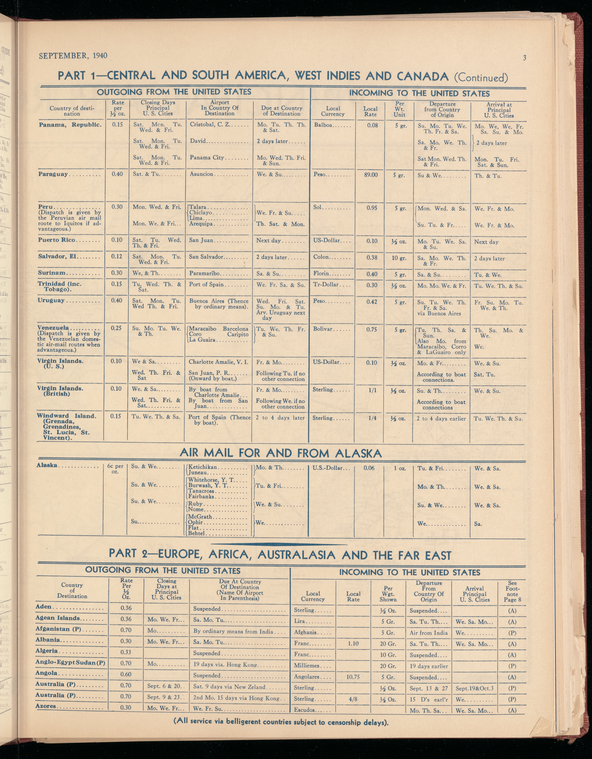 SEPTEMBER, 1940 3
PART 1—CENTRAL AND SOUTH AMERICA, WEST INDIES AND CANADA (Continued)
OUTGOING FROM THE UNITED STATES INCOMING TO THE UNITED STATES
Country of destination Rate per ½ oz. Closing Days Principal U. S. Cities Airport In Country Of Destination Due at Country of Destination Local Currency Local Rate Per Wt. Unit Departure from Country of Origin Arrival at Principal U. S. Cities
Panama, Republic. 0.15 Sat. Mon. Tu. Wed. & Fri. Cristobal, C. Z. Mo. Tu. Th. Th. & Sat. Balboa 0.08 5 gr. Su. Mo. Tu. We. Th. Fr. & Sa. Mo. We. We. Fr. Sa. Su. & Mo.
Sat. Mon. Tu. Wed. & Fri. David 2 days later Sa. Mo. We. Th. & Fr. 2 days later
Sat. Mon. Tu. Wed. & Fri. Panama City Mo. Wed. Th. Fri. & Sun. Sat Mon. Wed. Th. & Fri. Mon. Tu. Fri. Sat. & Sun.
Paraguay 0.40 Sat. & Tu. Asuncion We. & Su. Peso 89.00 5 gr. Su & We. Th. & Tu.
Peru (Dispatch is given by the Peruvian air mail route to Iquitos if advantageous.) 0.30 Mon. Wed. & Fri. Talara Chiclayo Lima We. Fr. & Su. Sol 0.95 5 gr. Mon. Wed. & Sa. We. Fr. & Mo.
Mon. We. & Fri. Arequipa Th. Sat. & Mon. Su. Tu. & Fr. We. Fr. & Mo.
Puerto Rico 0.10 Sat. Tu. Wed. Th. & Fri. San Juan Next day US-Dollar 0.10 ½ oz. Mo. Tu. We. Sa. & Su. Next day
Salvador, El 0.12 Sat. Mon. Tu. Wed. & Fri. San Salvador 2 days later Colon 0.38 10 gr. Sa. Mo. We. Th. & Fr. 2 days later
Surinam 0.30 We. & Th. Paramaribo. Sa. & Su. Florin 0.40 5 gr. Sa. & Su. Tu. & We.
Trinidad (inc. Tobago). 0.15 Tu. Wed. Th. & Sat. Port of Spain. We. Fr. Sa. & Su. Tr-Dollar 0.30 ½ oz. Mo. Mo. We. & Fr. Tu. We. Th. & Su.
Uruguay 0.40 Sat. Mon. Tu. Wed Th. & Fri. Buenos Aires (Thence by ordinary means). Wed. Fri. Sat. Su. Mo. & Tu. Arv. Uruguay next day Peso 0.42 5 gr. Su. Tu. We. Th. Fr. & Sa. via Buenos Aires Fr. Su. Mo. Tu. We. & Th.
Venezuela (Dispatch is given by the Venezuelan domestic air-mail routes when advantageous.) 0.25 Su. Mo. Tu. We. & Th. Maracaibo Barcelona Coro Caripito La Guaira Tu. We. Th. Fr. & Su. Bolivar 0.75 5 gr. Tu. Th. Sa. & Sun. Also Mo. from Maracaibo, Corro & LaGuairo only Th. Su. Mo. & We. We.
Virgin Islands. (U. S.) 0.10 We & Sa. Charlotte Amalie, V. I. Fr. & Mo. US-Dollar 0.10 ½ oz. Mo. & Fr. We. & Su.
Wed. Th. Fri. & Sat San Juan, P. R. (Onward by boat.) Following Tu. if no other connection According to boat connections. Sat. Tu.
Virgin Islands. (British) 0.10 We. & Sa. By boat from Charlotte Amalie Fr. & Mo. Sterling 1/1 ½ oz. Su. & Th. We. & Su.
Wed. Th. Fri. & Sat. By boat from San Juan Following We. if no other connection According to boat connections
Windward Island. (Grenada, Grenadines, St. Lucia, St. Vincent). 0.15 Tu. We. Th. & Sa. Port of Spain (Thence by boat). 2 to 4 days later Sterling 1/4 ½ oz. 2 to 4 days earlier Tu. We. Th. & Su.
AIR MAIL FOR AND FROM ALASKA
Alaska 6c per oz. Su. & We. Ketichikan Juneau Mo. & Th. U.S.-Dollar 0.06 1 oz. Tu. & Fri. We. & Sa.
Su. & We. Whitehorse, Y. T. Burwash, Y. T. Tanacross Fairbanks Tu. & Fri. Mo. & Th. We. & Sa.
Su. & We. Ruby Nome We. & Su. Su. & We. We. & Sa.
Su. McGrath Ophir Flat Bethel We. We. Sa.
PART 2—EUROPE, AFRICA, AUSTRALASIA AND THE FAR EAST
OUTGOING FROM THE UNITED STATES INCOMING TO THE UNITED STATES
Country of Destination Rate Per ½ Oz. Closing Days at Principal U. S. Cities Due At Country Of Destination (Name Of Airport In Parenthesis) Local Currency Local Rate Per Wgt. Shown Departure From Country Of Origin Arrival Principal U. S. Cities See Footnote Page 8
Aden 0.36 Suspended Sterling ½ Oz. Suspended (A)
Agean Islands 0.36 Mo. We. Fr. Sa. Mo. Tu. Lira 5 Gr. Sa. Tu. Th. We. Sa. Mo. (A)
Afganistan (P) 0.70 Mo. By ordinary means from India Afghania 5 Gr. Air from India We. (P)
Albania 0.30 Mo. We. Fr. Sa. Mo. Tu. Franc 1.10 20 Gr. Sa. Tu. Th. We. Sa. Mo. (A)
Algeria 0.33 Suspended Franc 10 Gr. Suspended (A)
Anglo-Egypt Sudan (P) 0.70 Mo. 19 days via. Hong Kong Milliemes 20 Gr. 19 days earlier (P)
Angola 0.60 Suspended Angolares 10.75 5 Gr. Suspended (A)
Australia (P) 0.70 Sept. 6 & 20. Sat. 9 days via New Zeland Sterling ½ Oz. Sept. 13 & 27 Sept.19&Oct.3 (P)
Australia (P) 0.70 Sept. 9 & 23. 2nd Mo. 15 days via Hong Kong Sterling 4/8 ½ Oz. 15 D's earl'r We. (P)
Azores 0.30 Mo. We. Fr. We. Fr. Su. Escudos Mo. Th. Sa. We. Sa. Mo. (A)
(All service via belligerent countries subject to censorship delays).